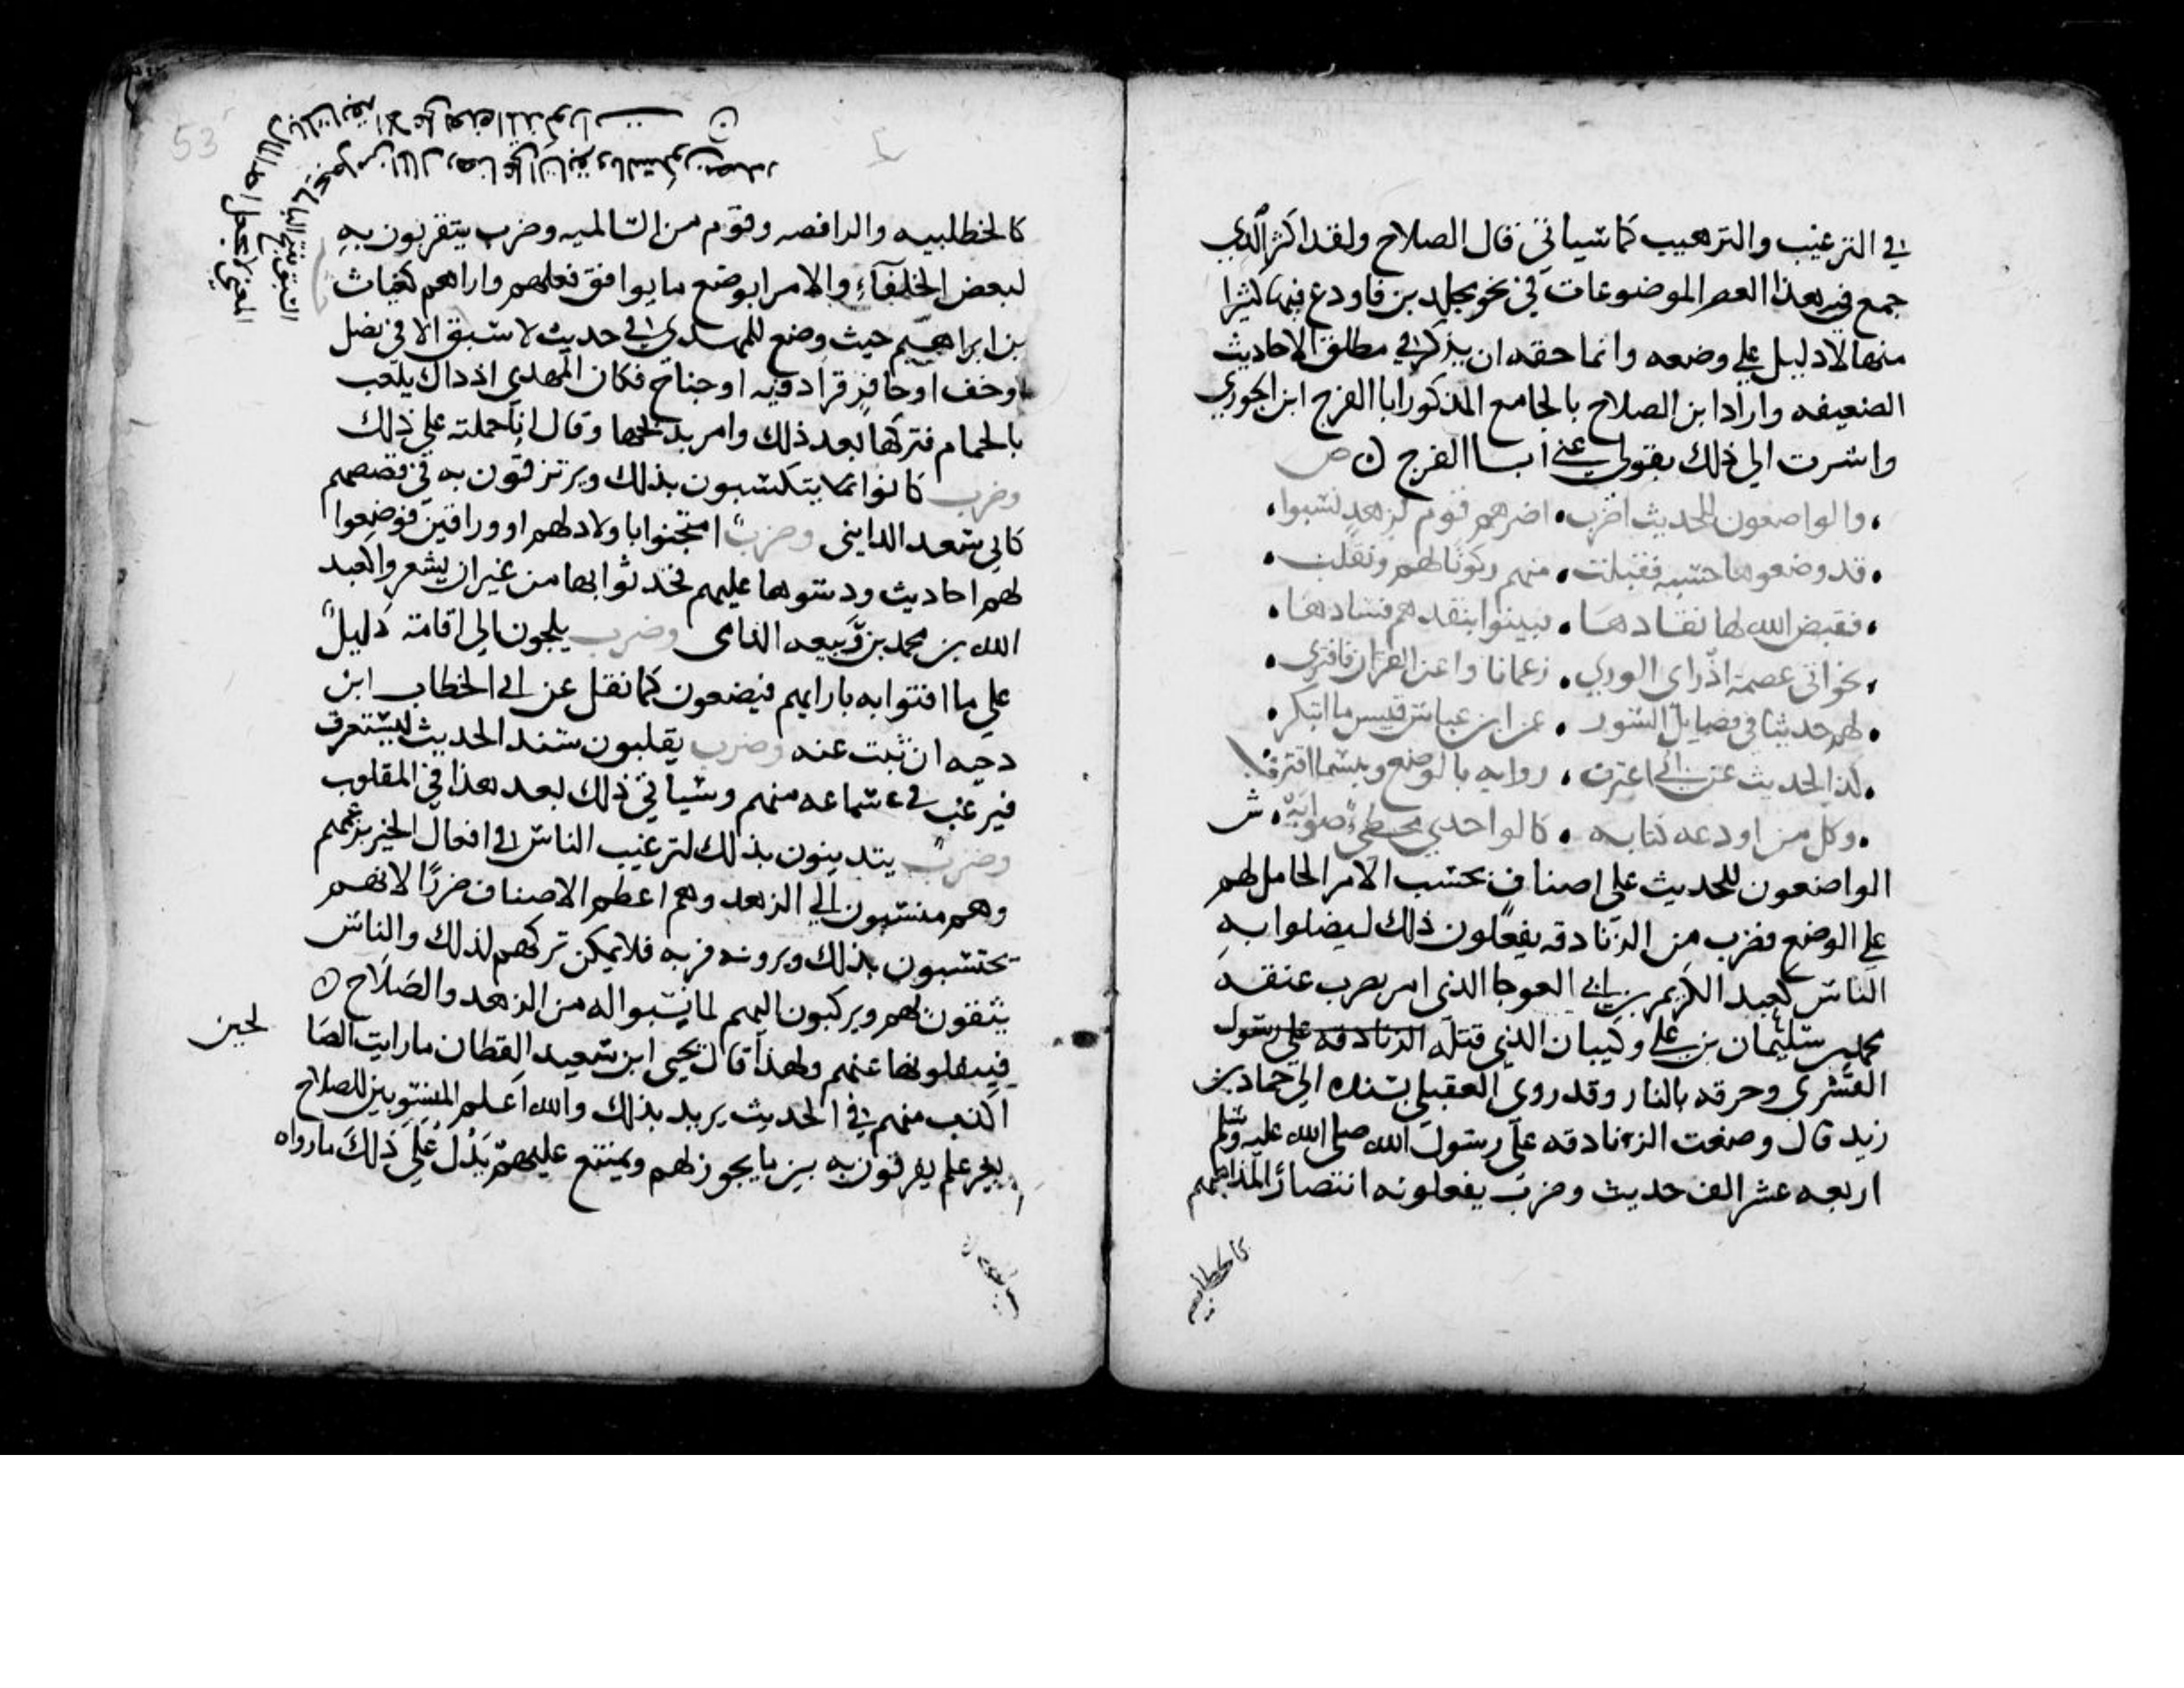 في الترغيب والترهيب كما سياتي قال الصلاح ولقد اكثر الذي
جمع في هذا العصر الموضوعات في نحو مجلدين فاودع فيها كثيرا
منها لا دليل علي وضعه وانما حقه ان يذكر في مطلق الاحاديث
الضعيفه واراد ابن الصلاح بالجامع المذكور ابا الفرج ابن الجوزي
واشرت الي ذلك بقولي عني ابا الفرج ن ص
والواضعون للحديث اضرب • اضرهم قوم لزهد نسبوا
قد وضعوها حسبه فقبلت • منهم ركونا لهم ونقلت
فقيض الله لها نقادها • فبينوا بنقدهم فسادها
نحو ابي عصمة اذ راي الوري • زعما ناوا عن القران فافتري
لهم حديثا في فضايل السور • عن ابن عباس فبيس ما ابتكر
كذا الحديث عن ابي اعترف • روايه بالوضع وبيسما اقترف
وكل من اودعه كتابه • كالواحدي مخطئ صوابه • ش
الواضعون للحديث علي اصناف بحسب الامر الحامل لهم
علي الوضع فضرب من الزنادقه يفعلون ذلك ليضلوا به
الناس كعبد الكريم بن ابي العوجا الذي امر بضرب عنقه
محمد بن سليمان بن علي وكبيان الذي قتله الزنادقه علي رسول
القسري وحرقه بالنار وقد روي العقيلي بسنده الي حماد بن
زيد قال وضعت الزنادقه علي رسول الله صلي الله عليه وسلم
اربعه عشر الف حديث وضرب يفعلونه انتصارا لمذاهبهم
كالخطابيه
53
كالخطابيه والرافضه وقوم من السالميه وضرب يتقربون به
لبعض الخلفاء والامرا بوضع ما يوافق فعلهم واراهم كغياث
بن ابراهيم حيث وضع للمهدي في حديث لا سبق الا في نصل
او خف او حافر فزاد فيه او جناح فكان المهدي اذ ذاك يلعب
بالحمام فتركها بعد ذلك وامر بذبحها وقال انا حملته علي ذلك
وضرب كانوا يتكسبون بذلك ويرتزقون به في قصصهم
كابي سعد المدايني وضرب امتحنوا باولاد لهم او وراقين فوضعوا
لهم احاديث ودسوها عليهم فحدثوا بها من غير ان يشعروا كعبد
الله بن محمد بن ربيعه القدامي وضرب يلجون الي اقامة دليل
علي ما افتوا به بارايهم فيضعون كما نقل عن ابي الخطاب ابن
دحيه ان ثبت عنه وضرب يقلبون سند الحديث ليستغرب
فيرغب في سماعه منهم وسياتي ذلك بعد هذا في المقلوب
وضرب يتدينون بذلك لترغيب الناس في افعال الخير بزعمهم
وهم منتسبون الي الزهد وهم اعظم الاصناف ضررا لانهم
يحتسبون بذلك ويرونه قربه فلا يمكن تركهم لذلك والناس
يثقون لهم ويركبون اليهم لما نسبوا له من الزهد والصلاح ن
فينقلونها عنهم ولهذا قال يحيي ابن سعيد القطان ما رايت الصا
لحين
اكذب منهم في الحديث يريد بذلك والله اعلم المنسوبين للصلاح
بغير علم يفرقون به بين ما يجوز لهم ويمتنع عليهم يدل علي ذلك ما رواه